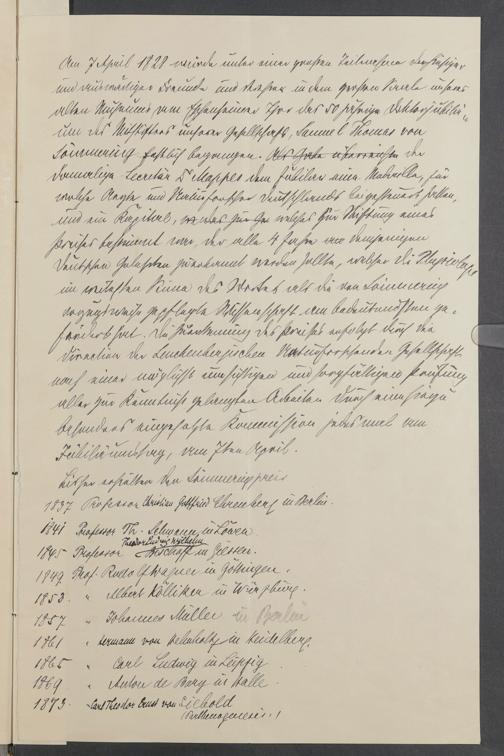 Am 7 April 1828 wurde unter einer großen Teilnahme der hiesiger
und auswärtiger Freunde und in dem großen Saale unseres
alten Museums am Eschenheimer Thor das 50 jährige Doktorjubilä-
um des Mitstifters unserer Gesellschaft, Samuel Thomas von
Sömmering festlich begangen. Als Gabe überreichte der
damalige Secretär Dr Mappes dem Jubilar eine Medaille, für
welche Aerzte und Naturforscher Deutschlands beigesteuert hatten,
und ein Kapital, welches zur Stiftung eines
Preises bestimmt war, der alle 4 Jahre an demjenigen
deutschen Gelehrten zuerkannt werden sollte, welcher die Physiologie
im weitesten Sinne des Wortes als die von Sömmering
vorzugsweise gepflegte Wissenschaft am bedeutendsten ge-
fördert hat. Die Zuerkennung des Preises erfolgt durch die
Direction der Senckenbergischen Naturforschenden Gesellschaft
nach einer möglichst umsichtigen und sorgfältigen Prüfung
aller zur Kenntniß gelangten Arbeiten durch eine dazu
besonders eingesetzte Kommission jedesmal am
Jubiläumstag, am 7ten April.
Bisher erhielten den Sömmeringpreis
1837 Professor Christian Gottfried Ehrenberg in Berlin.
1841 Professor Th. Schwann in Löwen
1845 Professor Theodor Ludwig Wilhelm Bischoff in Giessen.
1849 Prof. Rudolf Wagner in Göttingen.
1853. " Albert Kölliker in Würzburg.
1857 " Johannes Müller in Berlin
1861 " Hermann von Helmholtz in Heidelberg.
1865 " Carl Ludwig in Leipzig.
1869 " Anton de Bary in Halle.
1873. " Carl Theodor Ernst von Siebold
(Parthenogenesis!)